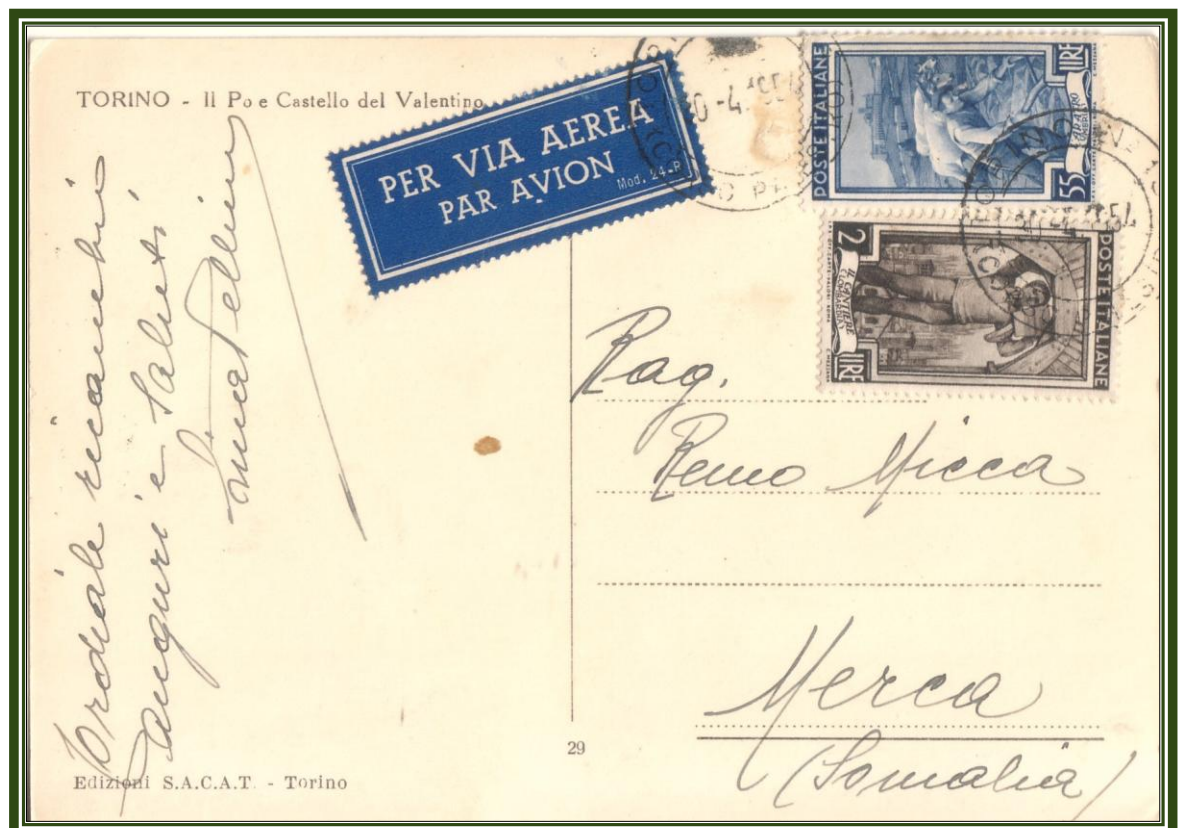 TORINO - Il Po e Castello del Valentino
PER VIA AEREA
PAR AVION
Mod. 24-R
POSTE ITALIANE
55 LIRE
POSTE ITALIANE
2 LIRE
IL CANTIERE
Cordiale ricambi
auguri e saluti
Rag.
Remo Micca
Merca
(Somalia)
29
Edizioni S.A.C.A.T. - Torino